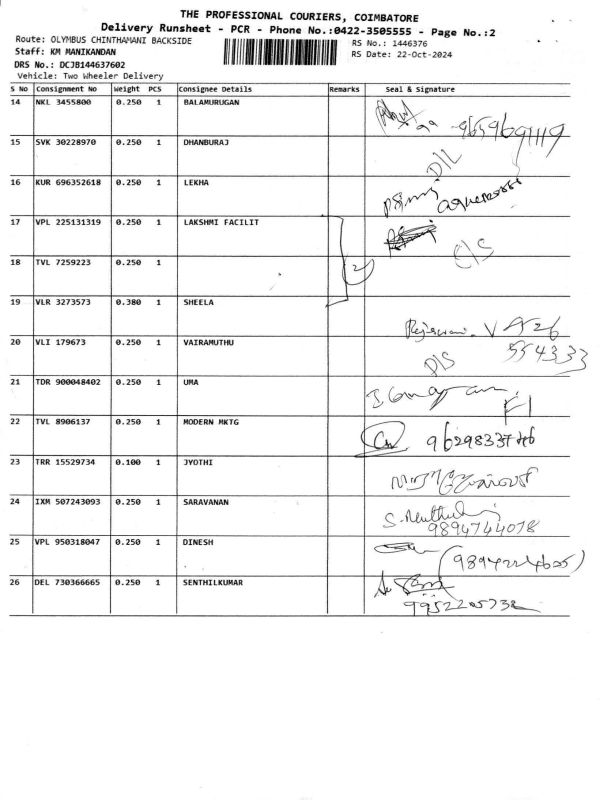 THE PROFESSIONAL COURIERS, COIMBATORE
Delivery Runsheet - PCR - Phone No.:0422-3505555 - Page No.:2
Route: OLYMBUS CHINTHAMANI BACKSIDE
RS No.: 1446376
Staff: KM MANIKANDAN
RS Date: 22-Oct-2024
DRS No.: DCJB144637602
Vehicle: Two Wheeler Delivery
S No Consignment No Weight PCS Consignee Details Remarks Seal & Signature
14 NKL 3455800 0.250 1 BALAMURUGAN 9659691119
15 SVK 30228970 0.250 1 DHANBURAJ D/L
16 KUR 696352618 0.250 1 LEKHA
17 VPL 225131319 0.250 1 LAKSHMI FACILIT
18 TVL 7259223 0.250 1 2 C/S
19 VLR 3273573 0.380 1 SHEELA
20 VLI 179673 0.250 1 VAIRAMUTHU D/S 554333
21 TDR 900048402 0.250 1 UMA
22 TVL 8906137 0.250 1 MODERN MKTG 9629833746
23 TRR 15529734 0.100 1 JYOTHI
24 IXM 507243093 0.250 1 SARAVANAN 9894744078
25 VPL 950318047 0.250 1 DINESH
26 DEL 730366665 0.250 1 SENTHILKUMAR 9952205732